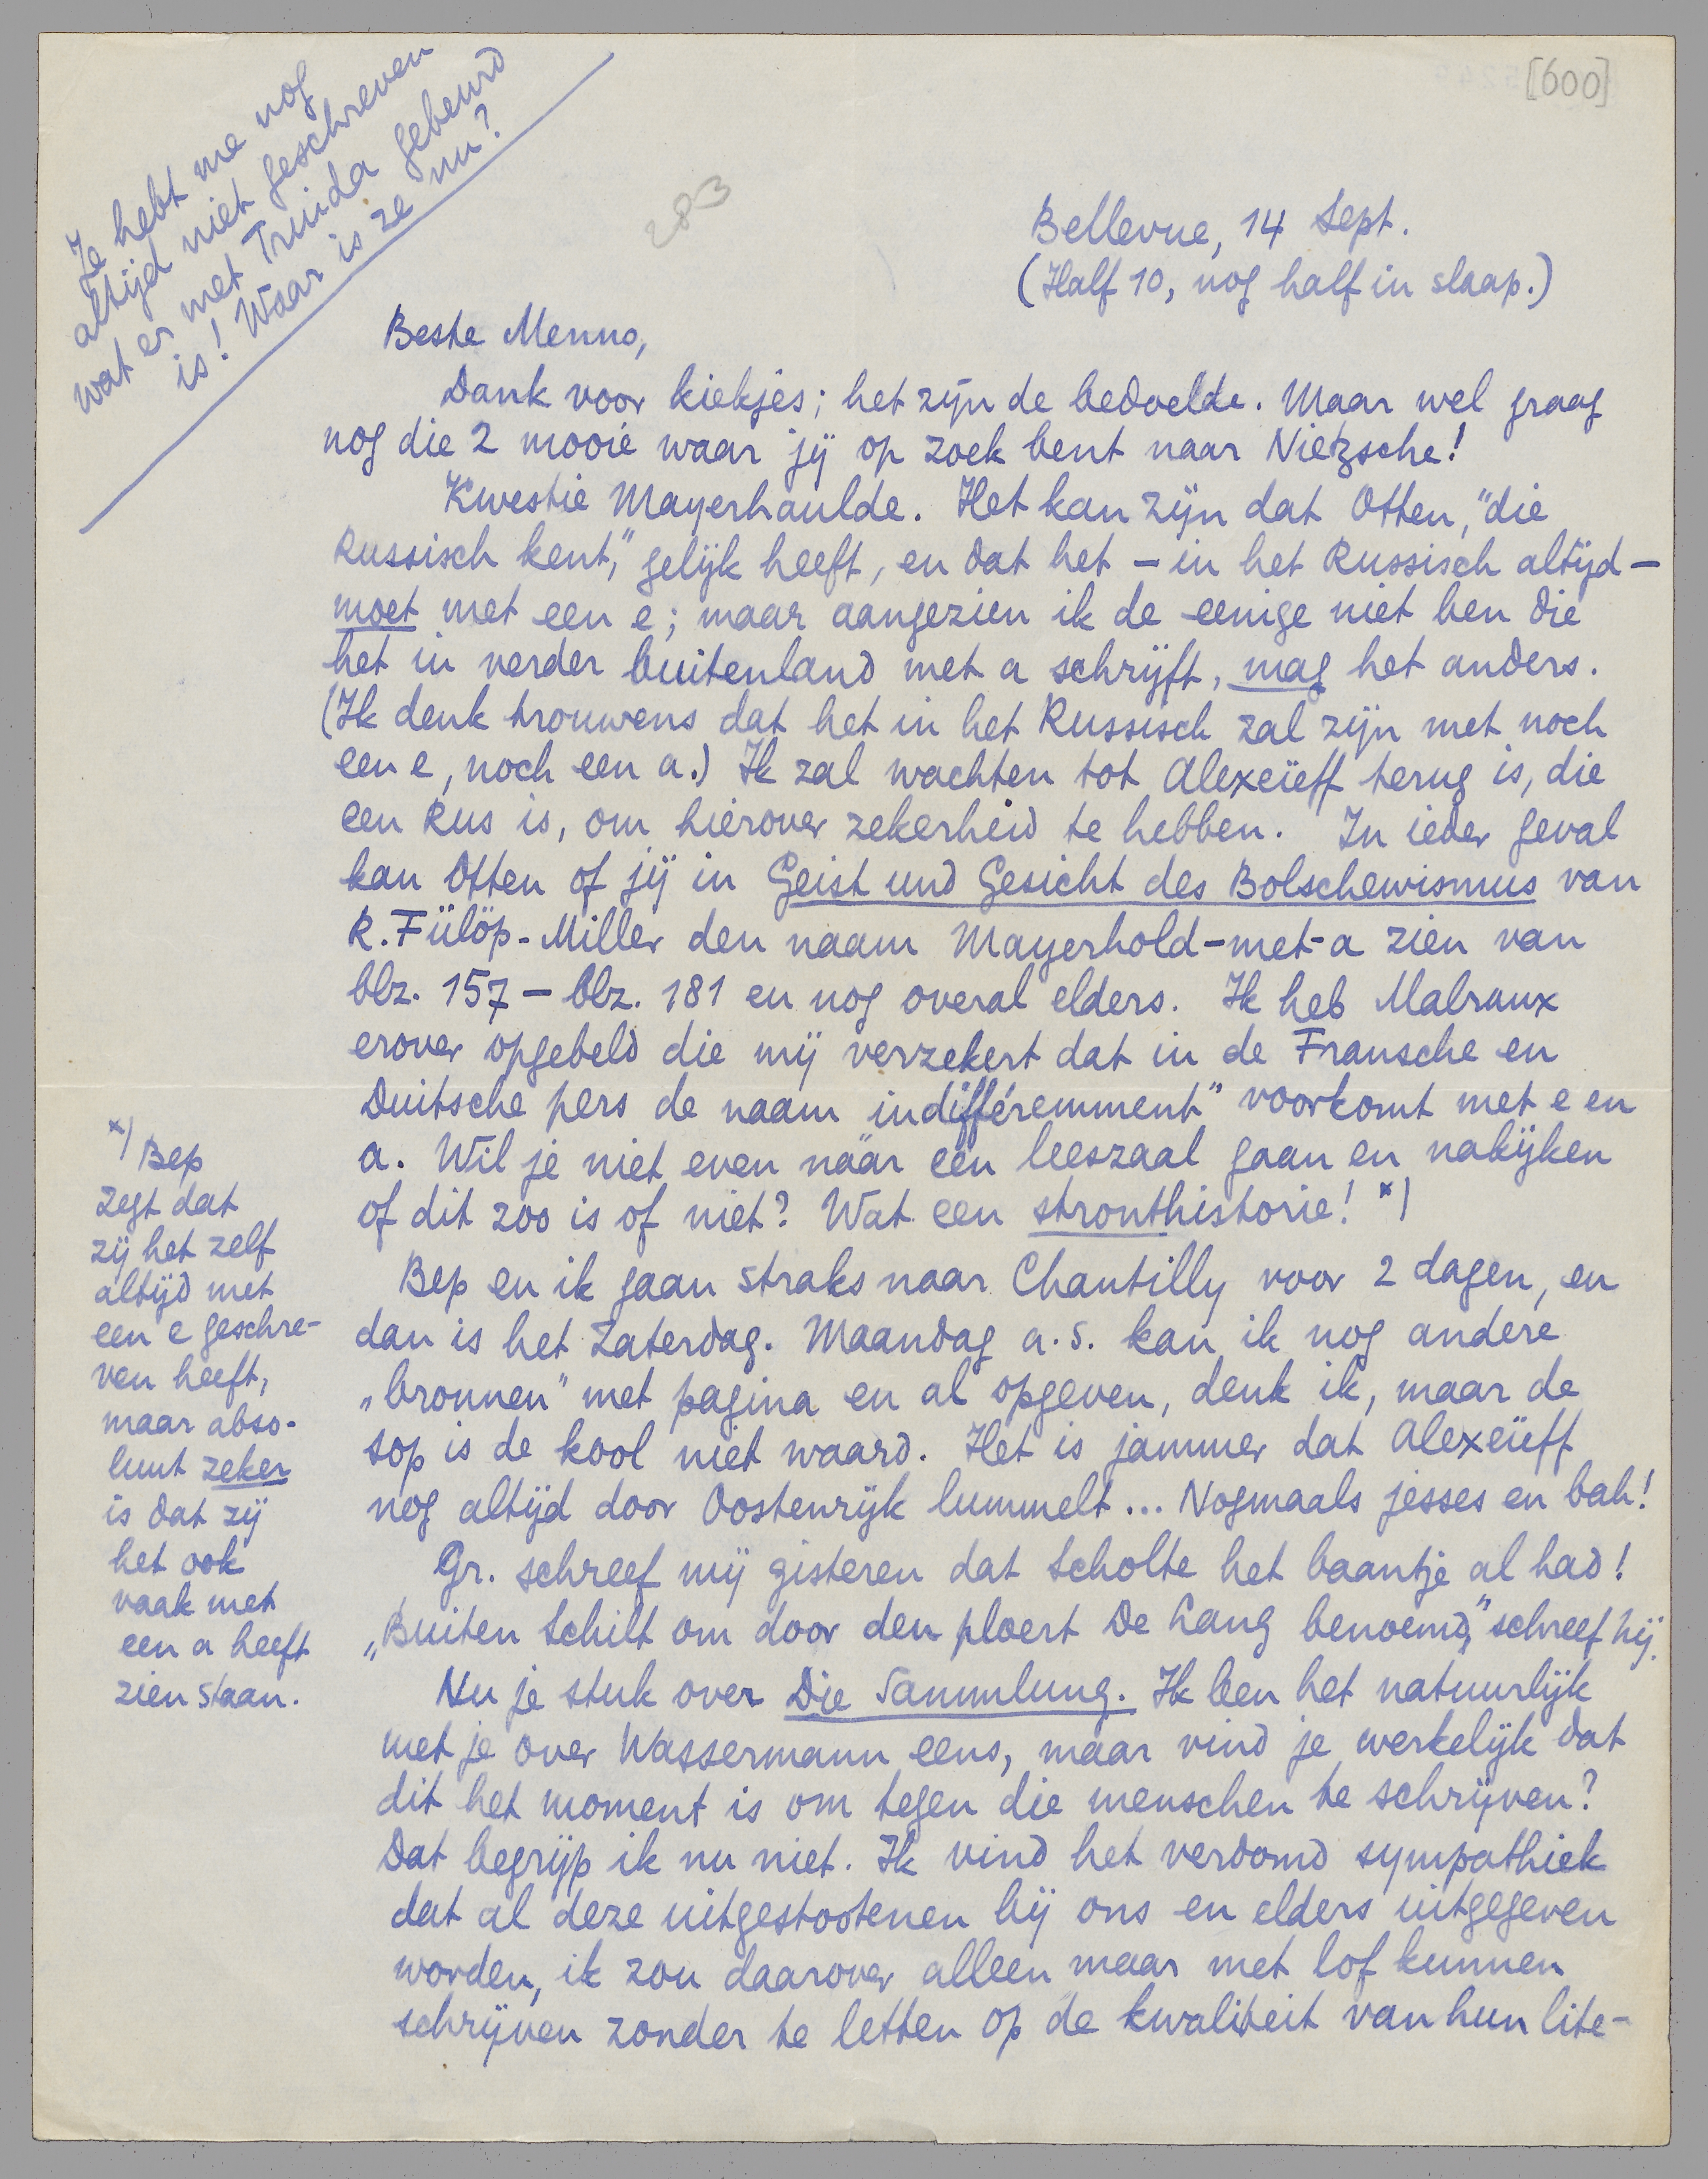 [600]
283
Je hebt me nog
altijd niet geschreven
wat er met Truida gebeurd
is! Waar is ze nu?
Bellevue, 14 Sept.
(Half 10, nog half in slaap.)
Beste Menno,
Dank voor kiekjes; het zijn de bedoelde. Maar wel graag
nog die 2 mooie waar jij op zoek bent naar Nietzsche!
Kwestie Mayerhoulde. Het kan zijn dat Otten, "die
Russisch kent," gelijk heeft, en dat het – in het Russisch altijd –
moet met een e; maar aangezien ik de eenige niet ben die
het in verder buitenland met a schrijft, mag het anders.
(Ik denk trouwens dat het in het Russisch zal zijn met noch
een e, noch een a.) Ik zal wachten tot Alexeïeff terug is, die
een Rus is, om hierover zekerheid te hebben. In ieder geval
kan Otten of jij in Geist und Gesicht des Bolschewismus van
R. Fülöp-Miller den naam Mayerhold-met-a zien van
blz. 157 – blz. 181 en nog overal elders. Ik heb Malraux
erover opgebeld die mij verzekert dat in de Fransche en
Duitsche pers de naam "indifféremment" voorkomt met e en
a. Wil je niet even naar een leeszaal gaan en nakijken
of dit zoo is of niet? Wat een stronthistorie! *)
*) Bep
zegt dat
zij het zelf
altijd met
een e geschre-
ven heeft,
maar abso-
luut zeker
is dat zij
het ook
vaak met
een a heeft
zien staan.
Bep en ik gaan straks naar Chantilly voor 2 dagen, en
dan is het Zaterdag. Maandag a.s. kan ik nog andere
„bronnen" met pagina en al opgeven, denk ik, maar de
sop is de kool niet waard. Het is jammer dat Alexeïeff
nog altijd door Oostenrijk lummelt... Nogmaals jesses en bah!
Gr. schreef mij gisteren dat Scholte het baantje al had!
„Buiten Schilt om door den ploert De Lang benoemd," schreef hij.
Nu je stuk over Die Sammlung. Ik ben het natuurlijk
met je over Wassermann eens, maar vind je werkelijk dat
dit het moment is om tegen die menschen te schrijven?
Dat begrijp ik nu niet. Ik vind het verdomd sympathiek
dat al deze uitgestootenen bij ons en elders uitgegeven
worden, ik zou daarover alleen maar met lof kunnen
schrijven zonder te letten op de kwaliteit van hun lite-